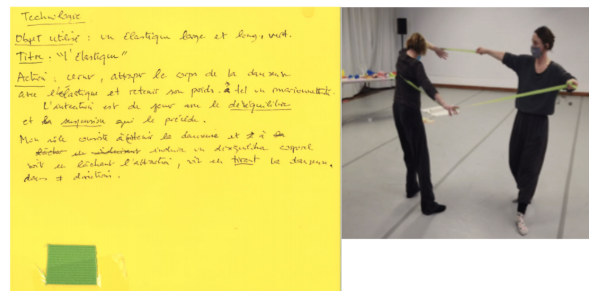 Technologie
Objet utilisé : un élastique large et long, vert.
Titre : "l'élastique"
Action : cerner, attraper le corps de la danseuse
avec l'élastique et retenir son poids. à tel un marionnettiste.
L'intention est de jouer avec le déséquilibre
et la suspension qui le précède.
Mon rôle consiste à retenir la danseuse et à
induire un déséquilibre corporel
soit en lâchant l'attraction, soit en tirant la danseuse,
dans ≠ directions.